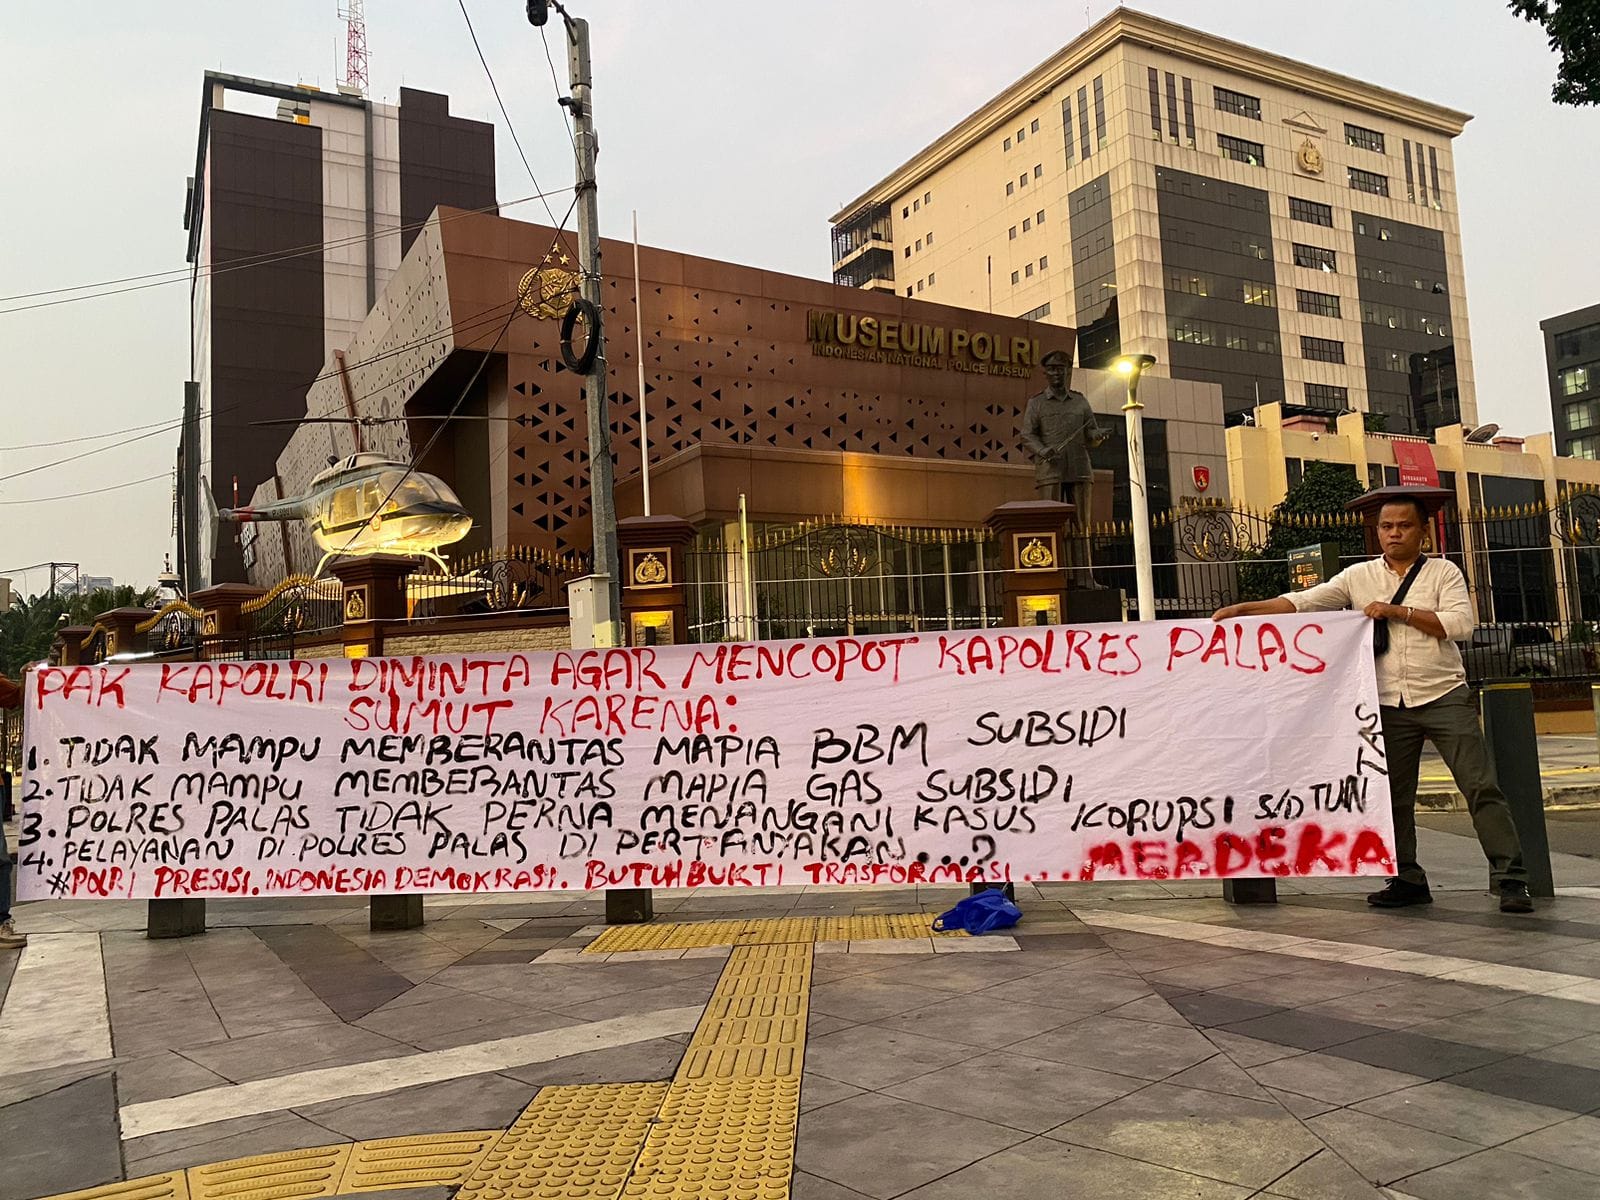 MUSEUM POLRI
INDONESIAN NATIONAL POLICE MUSEUM
PAK KAPOLRI DIMINTA AGAR MENCOPOT KAPOLRES PALAS
SUMUT KARENA:
1. TIDAK MAMPU MEMBERANTAS MAPIA BBM SUBSIDI
2. TIDAK MAMPU MEMBERANTAS MAPIA GAS SUBSIDI
3. POLRES PALAS TIDAK PERNA MENANGANI KASUS KORUPSI S/D TUNTAS
4. PELAYANAN DI POLRES PALAS DI PERTANYAKAN...?
#POLRI PRESISI. INDONESIA DEMOKRASI. BUTUH BUKTI TRASFORMASI... MERDEKA